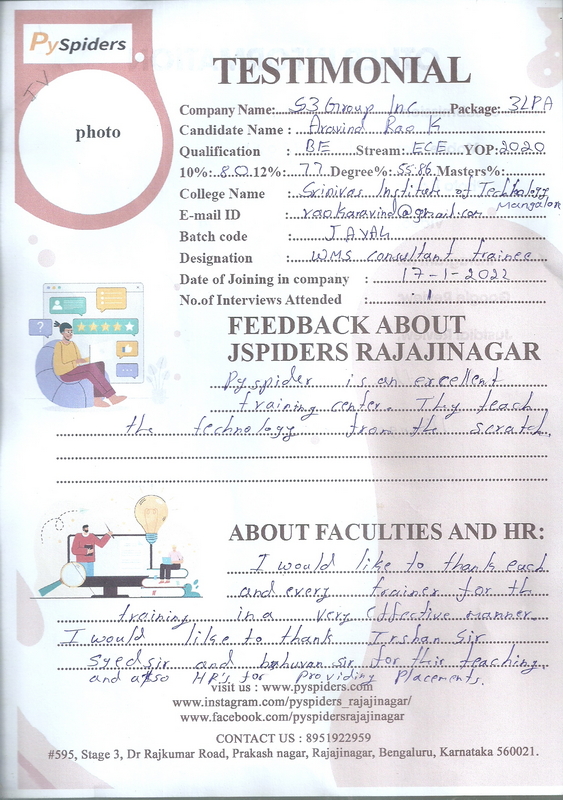 PySpiders
TESTIMONIAL
photo
Company Name: S3 Group Inc Package: 3LPA
Candidate Name : Aravind Rao K
Qualification : BE Stream: ECE YOP: 2020
10%: 80 12%: 77 Degree%: 55.86 Masters%:
College Name : Srinivas Institute of Technology
Mangalore
E-mail ID : raokaravind@gmail.com
Batch code : JAVA4
Designation : WMS consultant trainee
Date of Joining in company : 17-1-2022
No.of Interviews Attended : 1
FEEDBACK ABOUT
JSPIDERS RAJAJINAGAR
Pyspider is an excellent
training center. Thy teach
the technology from the scratch.
ABOUT FACULTIES AND HR:
I would like to thank each
and every trainer for th
training in a very effective manner.
I would like to thank Irshan Sir
Syed sir and bhuvan sir for this teaching
and also HR's for Providing Placements.
visit us : www.pyspiders.com
www.instagram.com/pyspiders_rajajinagar/
www.facebook.com/pyspidersrajajinagar
CONTACT US : 8951922959
#595, Stage 3, Dr Rajkumar Road, Prakash nagar, Rajajinagar, Bengaluru, Karnataka 560021.